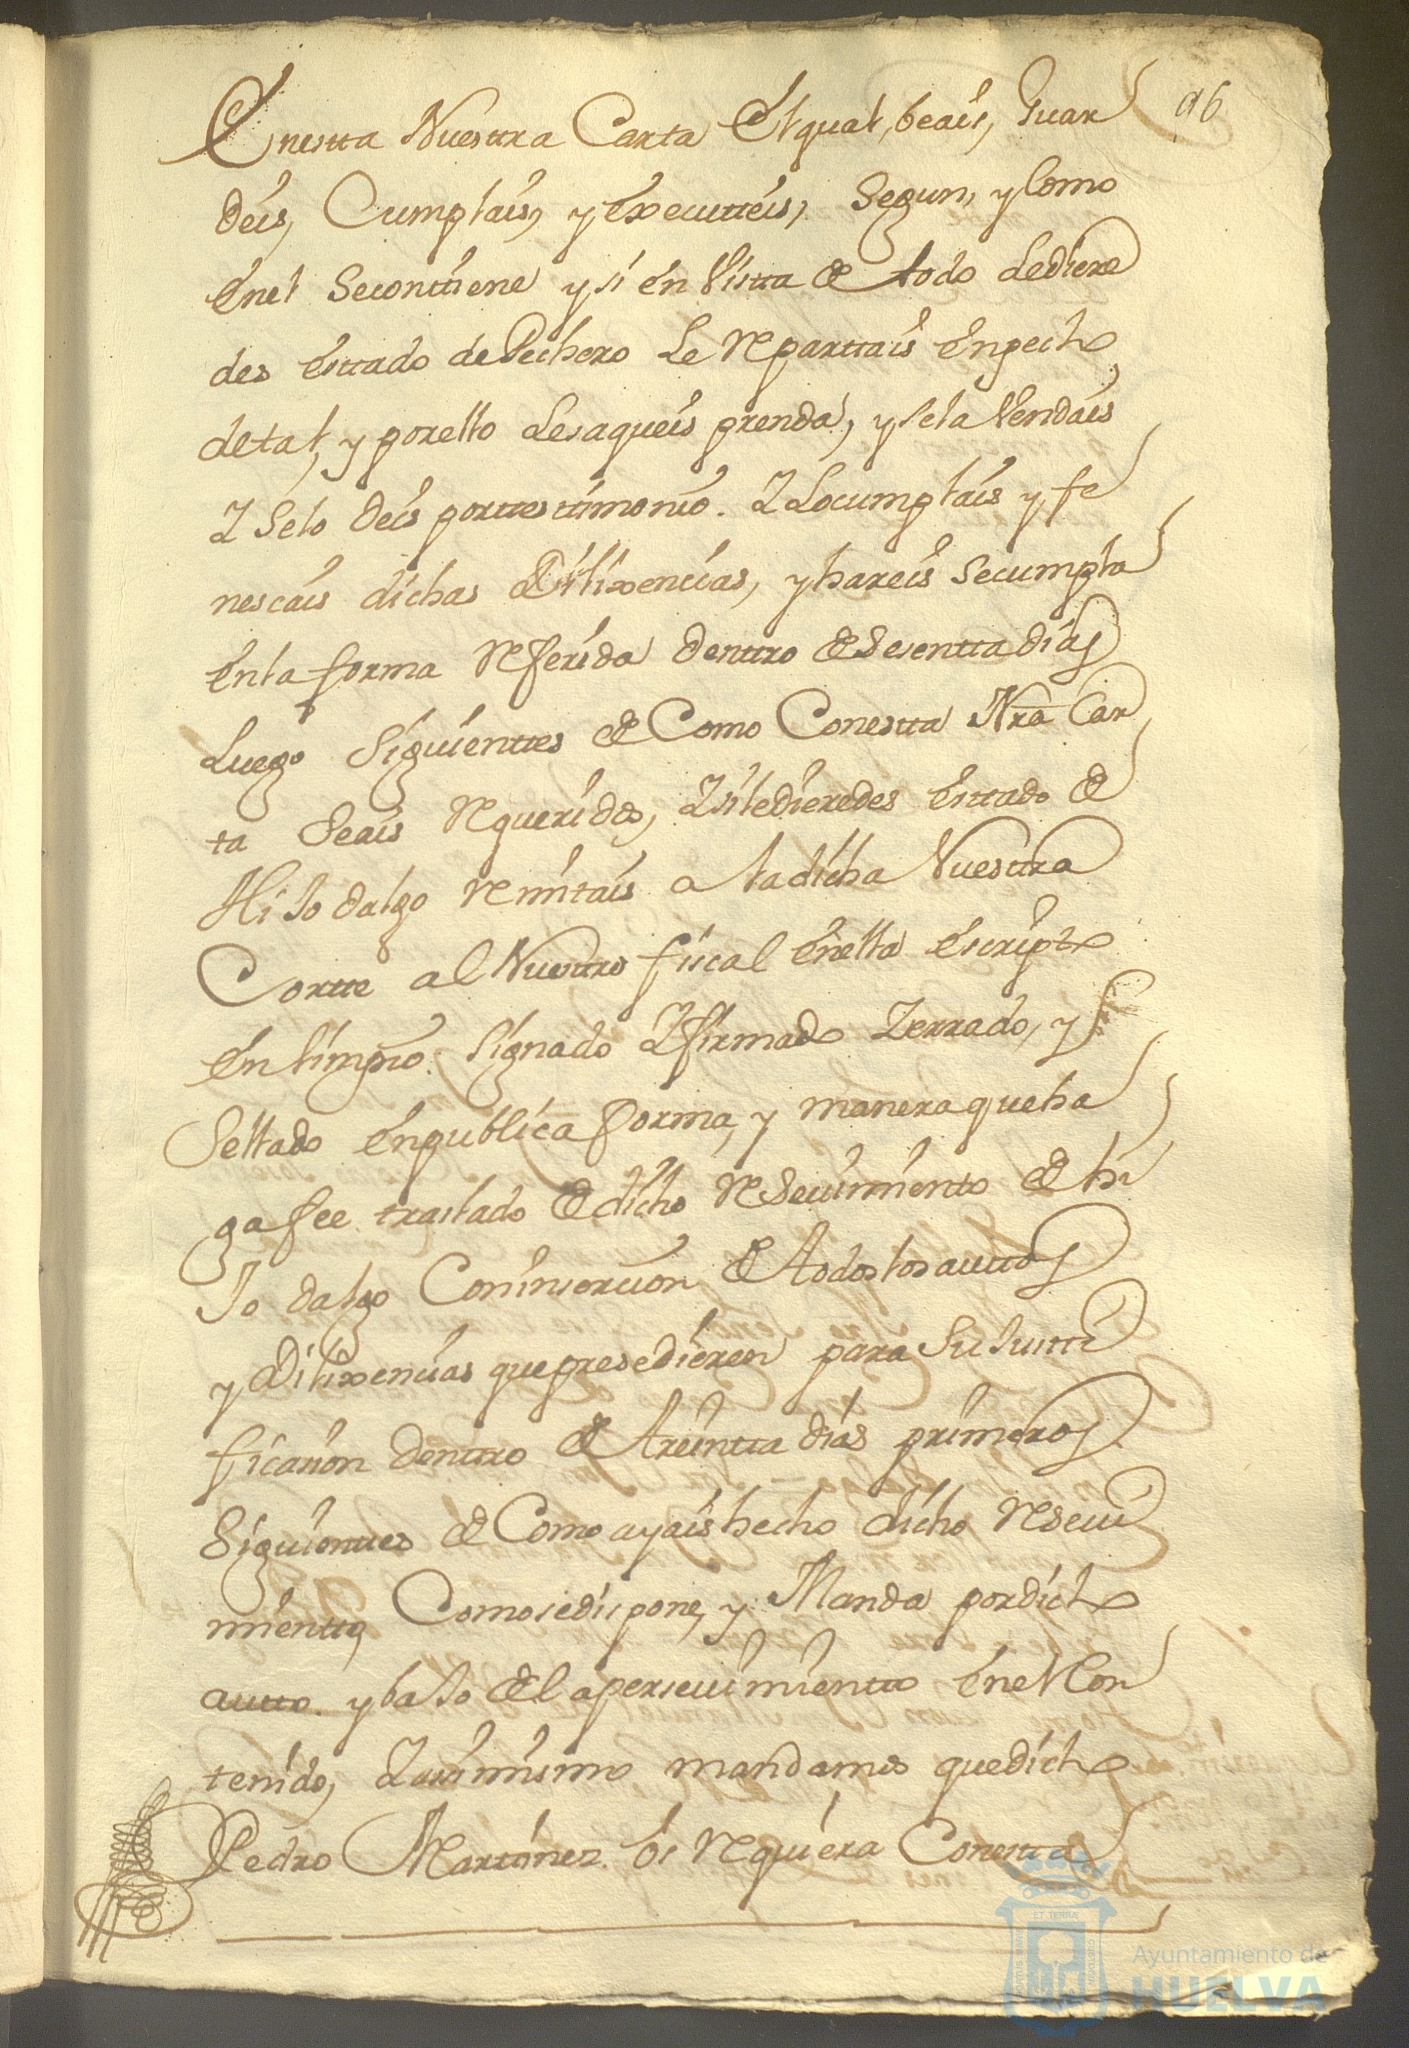 96
Enestta Nuesttra Cartta El qual, beais, Guar
deis, Cumplais, y executteis, Segun, y Como
en el Se conttiene y si en Vistta de todo Le diere
des esttado de Pechero Le Reparttais en pecho
de tal, y por ello Le saqueis prenda, y se la Vendais
Y Se lo deis por ttesttimonio. Y Lo cumplais y fe
nescais dichas Dilixencias, y hareis Se cumpla
en la forma Referida Denttro de Sesentta dias
Luego Siguienttes de Como Con estta Nra Car
ta Seais Requerido, Y si le dieredes esttado de
Hijo dalgo Remitais a la dicha Nuesttra
Cortte al Nuesttro fiscal en ella escripto
en limpio. Signado Y firmado Zerrado, y
Sellado en publica forma, y manera que ha
ga fee traslado de dicho Resevimiento de hi
Jo dalgo Con insercion de todos los auttos
y Dilixencias que presedieren para Su Justti
ficacion Denttro de treintta dias primeros
Siguienttes de Como ayais hecho dicho Resevi
mientto, Como se dispone, y Manda por dicho
autto. y bajo del apersevimientto en el Con
tenido, Y asimismo mandamos que dicho
Pedro Martinez os Requiera Con estta
ET TERRÆ
Ayuntamiento de
HUELVA